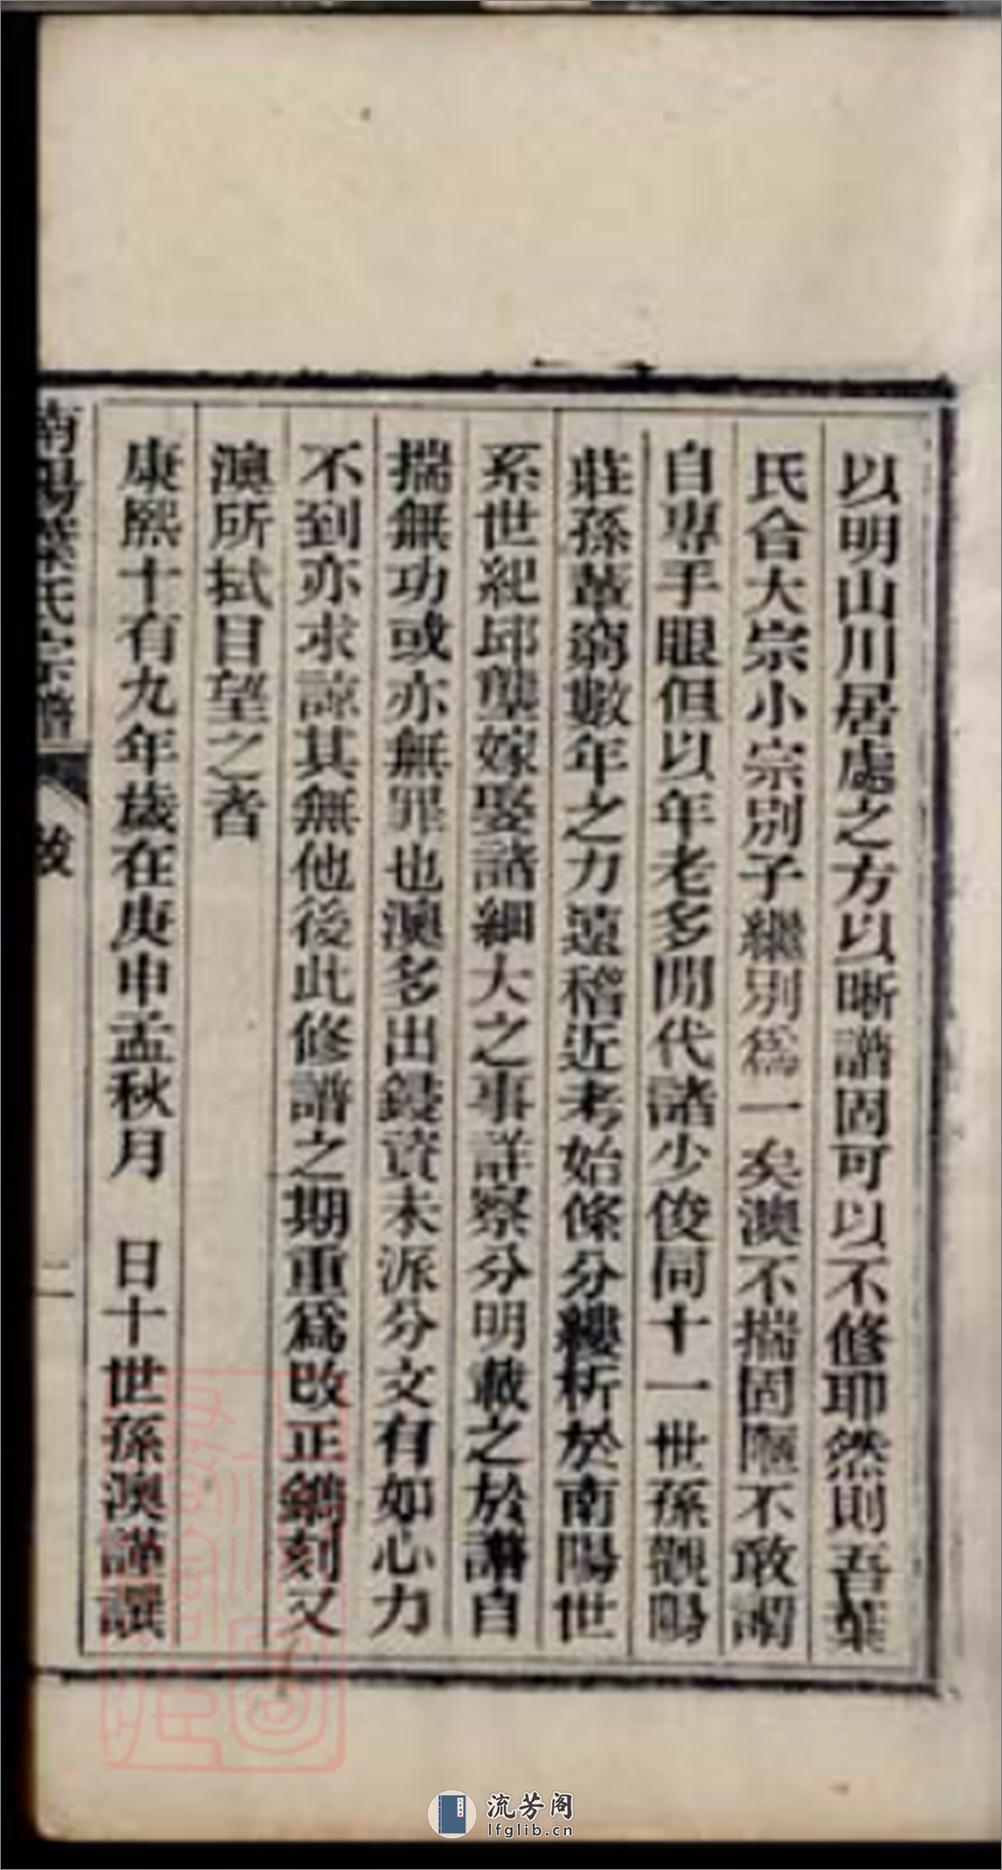 以明山川居處之方以晰譜固可以不修耶然則吾葉
氏合大宗小宗別子繼別爲一矣澳不揣固陋不敢謂
自專手眼但以年老多閒代諸少俊同十一世孫觀陽
莊孫輩窮數年之力遠稽近考始條分縷析於南陽世
系世紀邱壟嫁娶諸細大之事詳察分明載之於譜自
揣無功或亦無罪也澳多出鋟資木派分文有如心力
不到亦求諒其無他後此修譜之期重爲改正鐫刻又
澳所拭目望之者
康熙十有九年歲在庚申孟秋月 日十世孫澳謹譔
南陽葉氏宗譜 跋 二
流芳阁
lfglib.cn